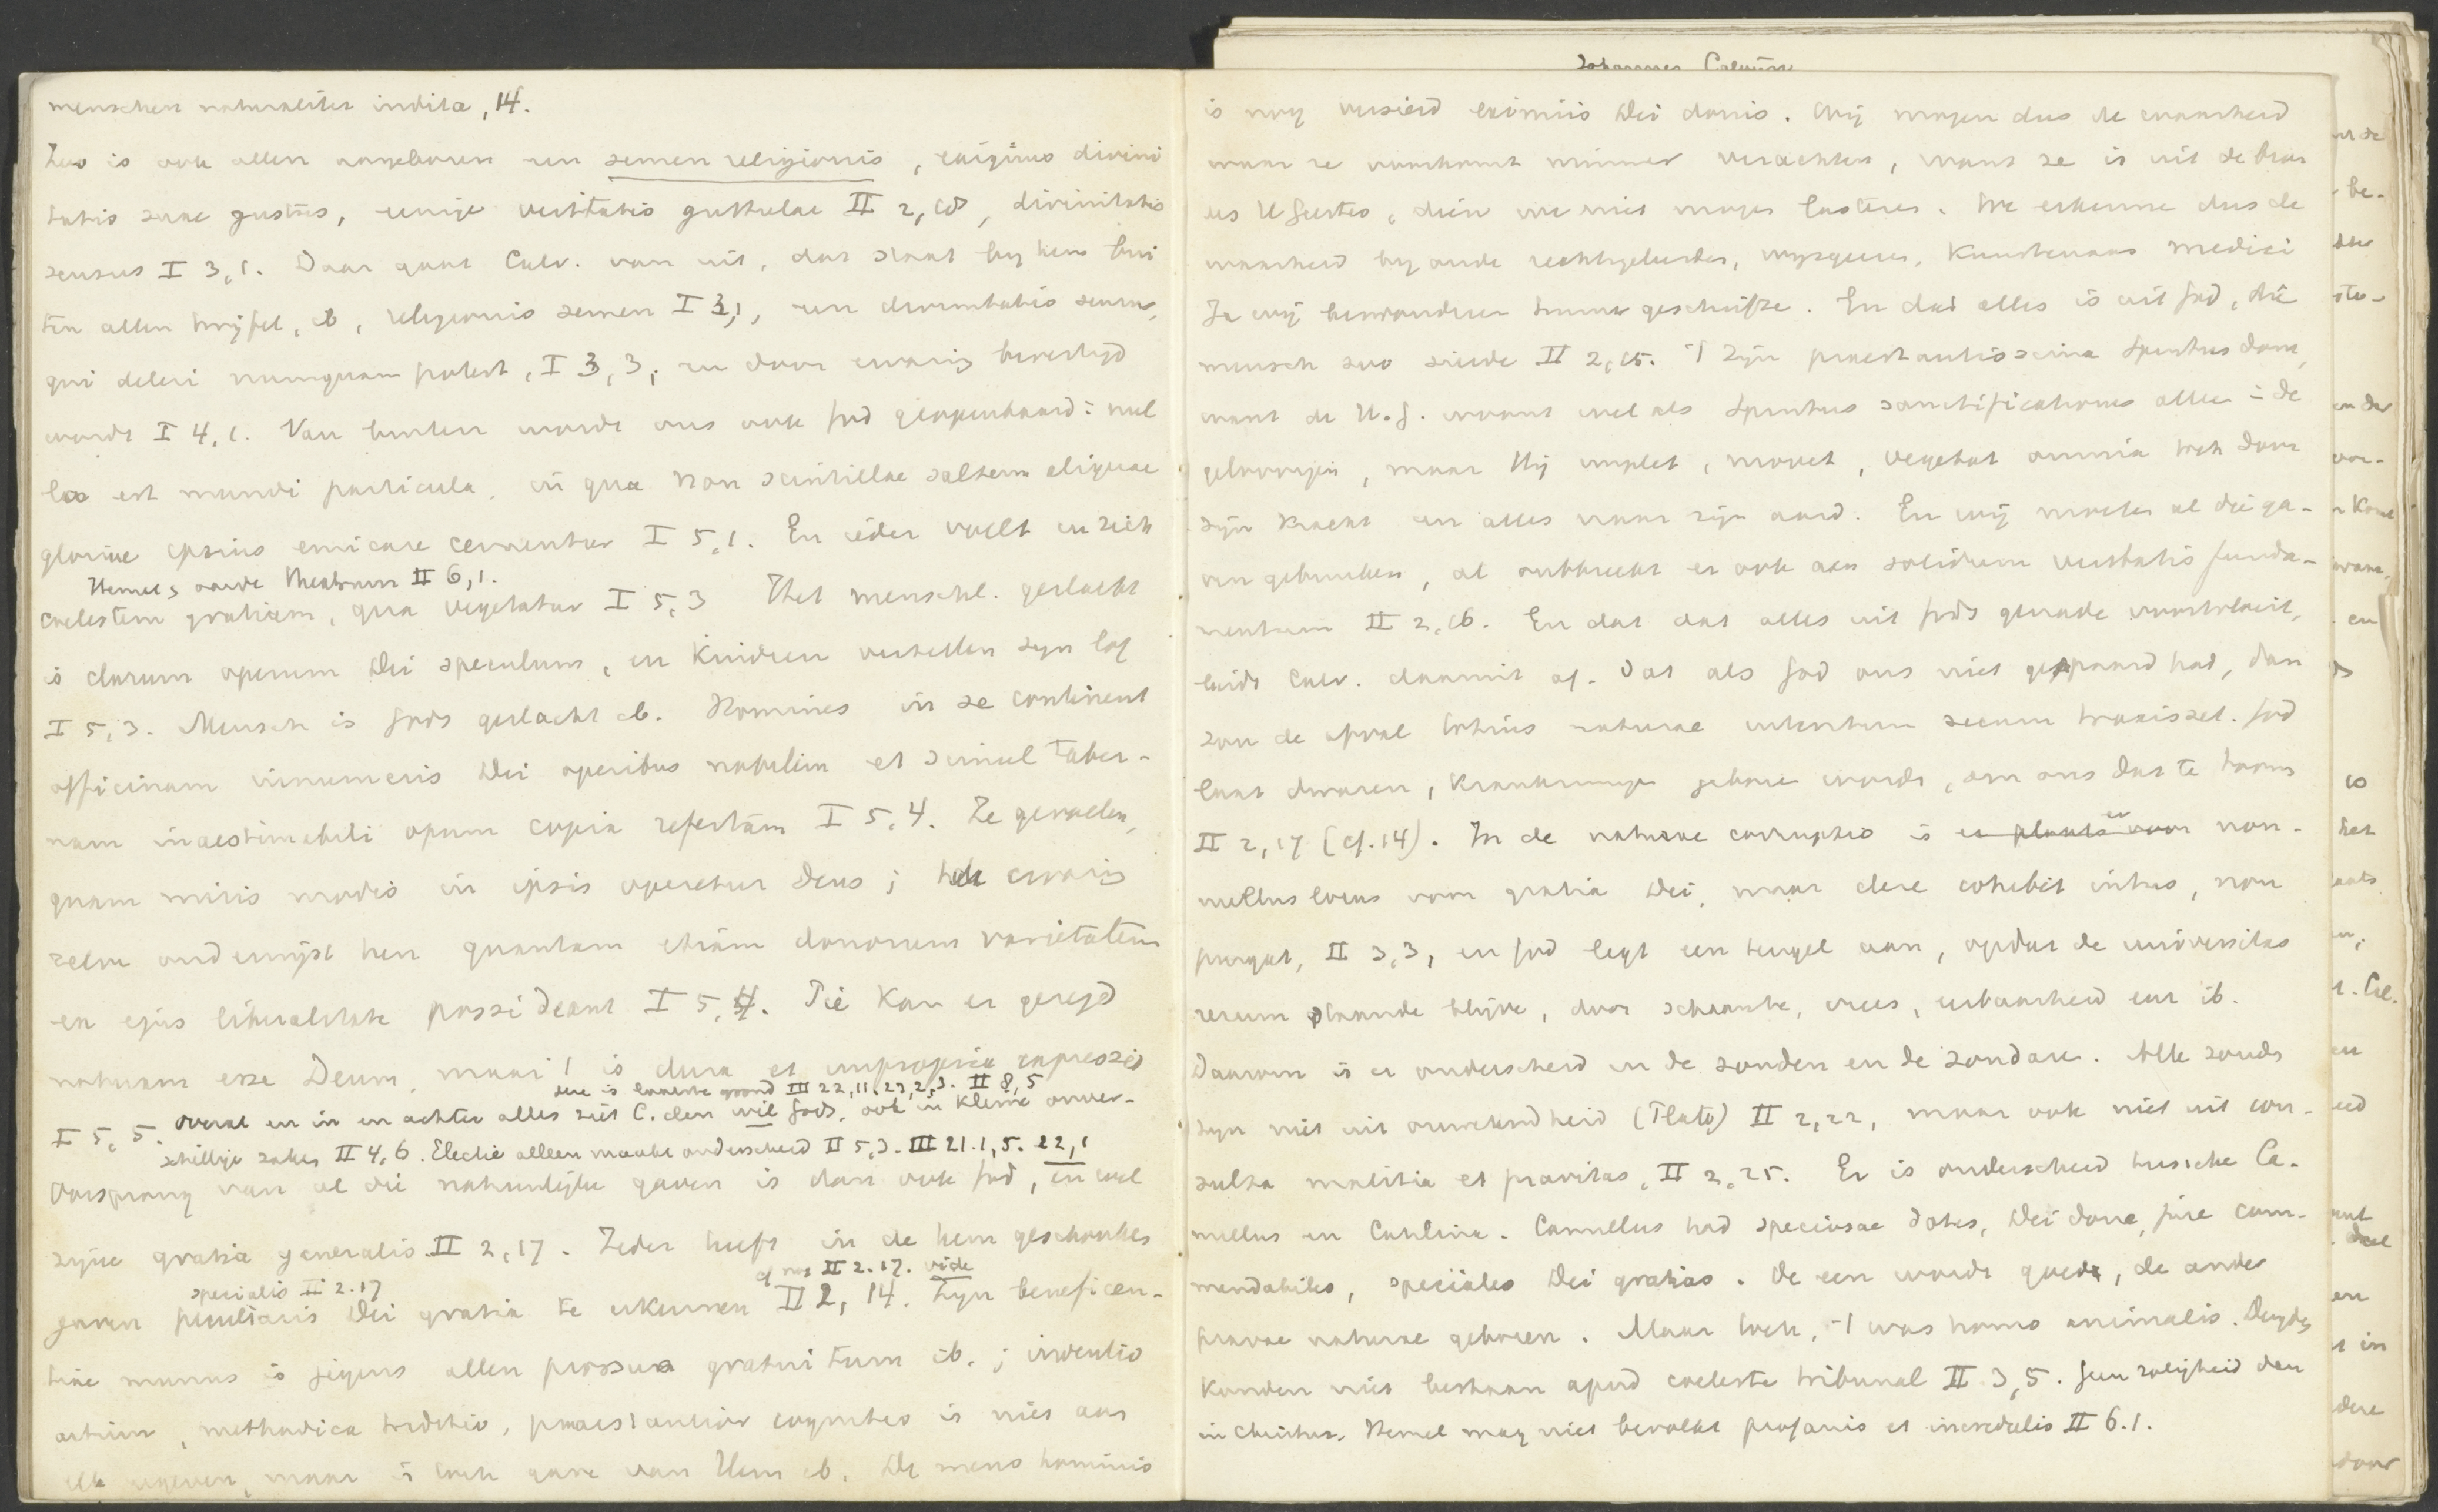 menschen naturaliter indita, 14.
Zoo is ook allen aangeboren een semen religionis, exiguus divini
tatis suae gustus, eenige veritatis guttulae II 2, 18, divinitatis
sensus I 3,1. Daar gaat Calv. van uit, dat staat bij hem bui
ten allen twijfel, ib, religionis semen I 3,1, een divinitatis sensus,
qui deleri numquam potest, I 3,3, en door ervaring bevestigd
wordt I 4,1. Van buiten wordt ons ook God geopenbaard: nul
la est mundi particula, in qua non scintillae saltem aliquae
gloriae ipsius emicare cernantur I 5,1. En ieder voelt in zich
Hemel, aarde theatrum II 6,1.
coelestem gratiam, qua vegetatur I 5,3 Het menschl. geslacht
is clarum operum Dei speculum, en kinderen vertellen zijn lof
I 5,3. Mensch is Gods geslacht ib. Homines in se continent
officinam innumeris Dei operibus nobilem et simul taber-
nam inaestimabili opum copia refertam I 5,4. Ze gevoelen,
quam miris modis in ipsis operetur Deus; de ervaring
zelve onderwijst hen quantam etiam donorum varietatem
ex ejus liberalitate possideant I 5,4. Pie kan er gezegd
naturam esse Deum, maar 't is dura et impropria expressio
deze is laatste grond III 22,11. 23,2,3. II 8,5
I 5,5. Overal en in en achter alles ziet C. den wil Gods, ook in kleine onver-
schillige zaken II 4,6. Electie alleen maakt onderscheid II 5,3. III 21.1,5. 22,1
Oorsprong van al die natuurlijke gaven is dan ook God, en wel
zijne gratia generalis II 2,17. Ieder heeft in de hem geschonken
specialis II 2.17 cf nog II 2.17. vide
gaven peculiaris Dei gratia te erkennen II 2, 14. Zijn beneficen-
tiae munus is jegens allen prorsus gratuitum ib.; inventio
artium, methodica traditio, praestantior cognitio is niet aan
elk gegeven, maar is toch gave van Hem ib. De mens hominis
Johannes Calvijn
is nog versierd eximiis Dei donis. Wij mogen dus de waarheid
waar ze voorkomt nimmer verachten, want ze is uit de bron
des H Geestes, dien we niet mogen lasteren. We erkennen dus de
waarheid bij oude rechtsgeleerden, wijsgeeren, kunstenaars medici
Ja wij bewonderen hunne geschriften. En dat alles is uit God, die
mensch zoo sierde II 2,15. 't Zijn praestantissima Spiritus dona,
want de H.G. woont wel als Spiritus sanctificationis alleen in de
geloovigen, maar Hij implet, movet, vegetat omnia toch door
zijn kracht en alles naar zijn aard. En wij moeten al die ga-
ven gebruiken, al ontbreekt er ook aan solidum veritatis funda-
mentum II 2,16. En dat dat alles uit Gods genade voortvloeit,
leidt Calv. daaruit af. Dat als God ons niet gespaard had, dan
zou de afval totius naturae interitum secum traxisset. God
laat dwazen, krankzinnigen geboren worden, om ons dat te toonen
II 2,17 (cf. 14). In de naturae corruptio is er plaats voor non-
nullus locus voor gratia Dei, maar deze cohibet intus, non
purgat, II 3,3, en God legt een teugel aan, opdat de universitas
rerum staande blijve, door schaamte, vrees, eerbaarheid enz ib.
Daarom is er onderscheid in de zonden en de zondaren. Alle zonden
zijn niet uit onwetendheid (Plato) II 2,22, maar ook niet uit con-
sulta malitia et pravitas, II 2,25. Er is onderscheid tusschen Ca-
millus en Catilina. Camillus had speciosae dotes, Dei dona, jure com-
mendabiles, speciales Dei gratias. De een wordt goed, de ander
pravae naturae geboren. Maar toch, 't was homo animalis. Deugden
konden niet bestaan apud coeleste tribunal II 3,5. Geen zaligheid dan
in Christus. Hemel mag niet bevolkt profanis et incredulis II 6.1.